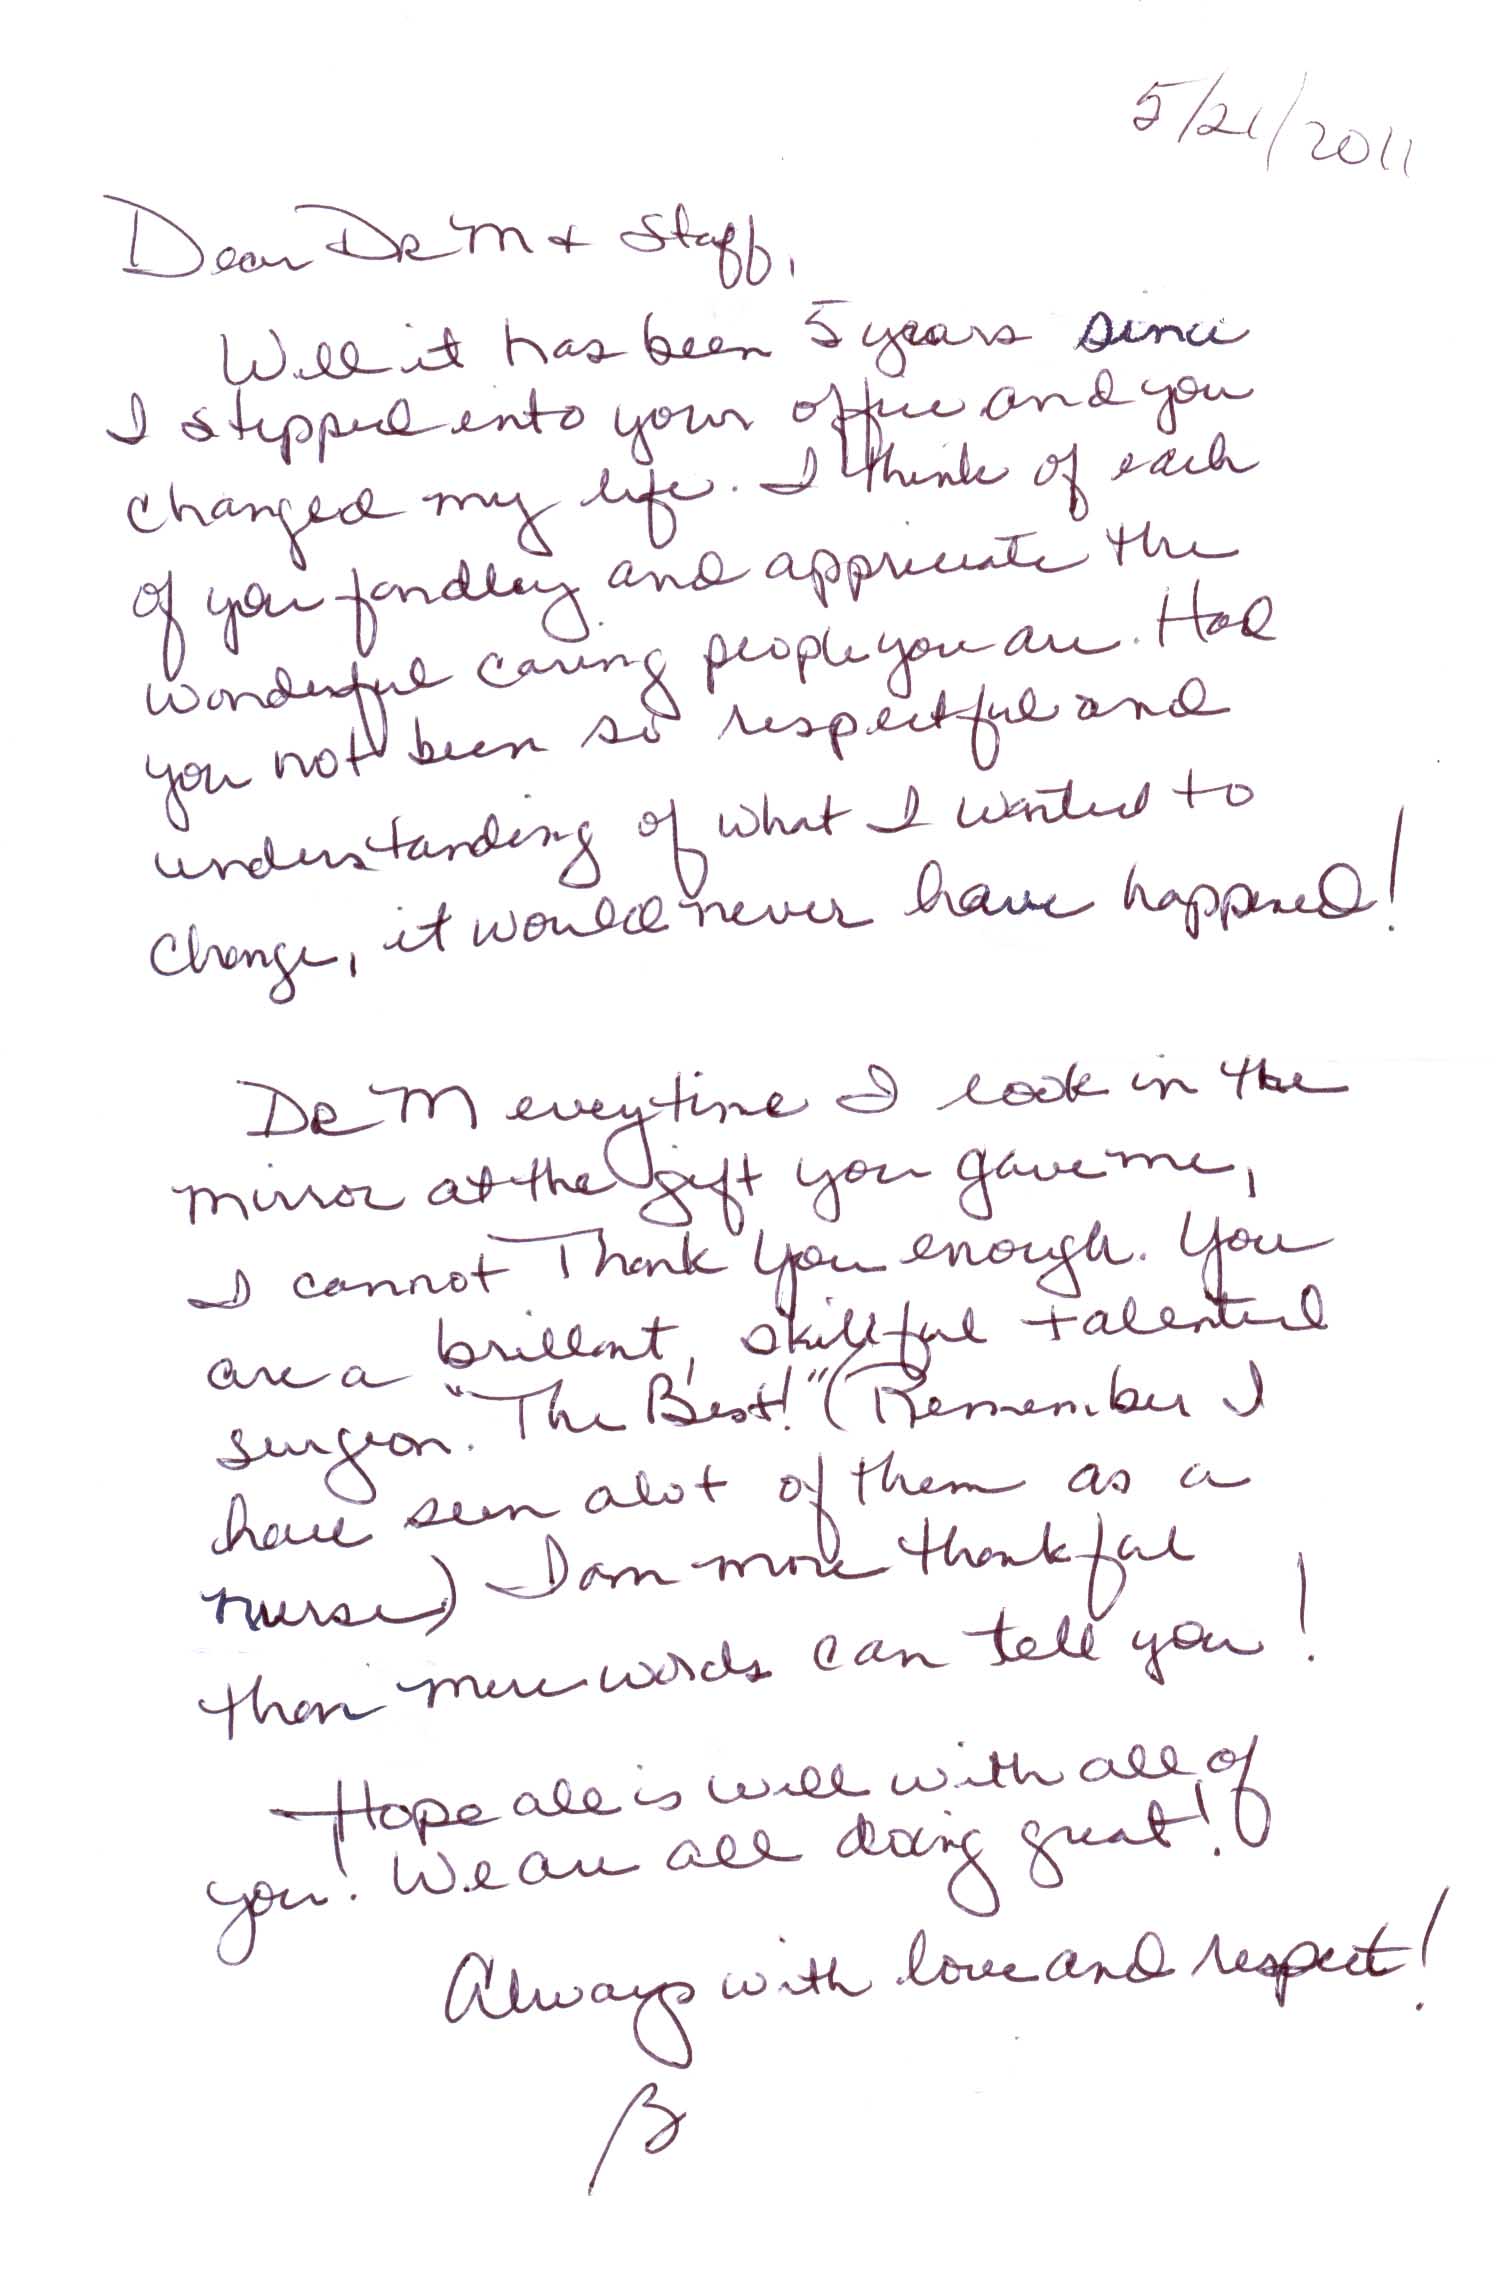 5/21/2011
Dear DR M + Staff,
Well it has been 5 years since
I stepped into your office and you
changed my life. I think of each
of you fondley and appreciate the
wonderful caring people you are. Had
you not been so respectful and
understanding of what I wanted to
change, it would never have happened!
DR M everytime I look in the
mirror at the gift you gave me,
I cannot Thank You enough. You
are a brillant, skillful talented
surgeon. "The Best!" (Remember I
have seen alot of them as a
nurse) I am more thankful
than mere words can tell you!
Hope all is well with all of
you! We are all doing great!
Always with love and respect!
B